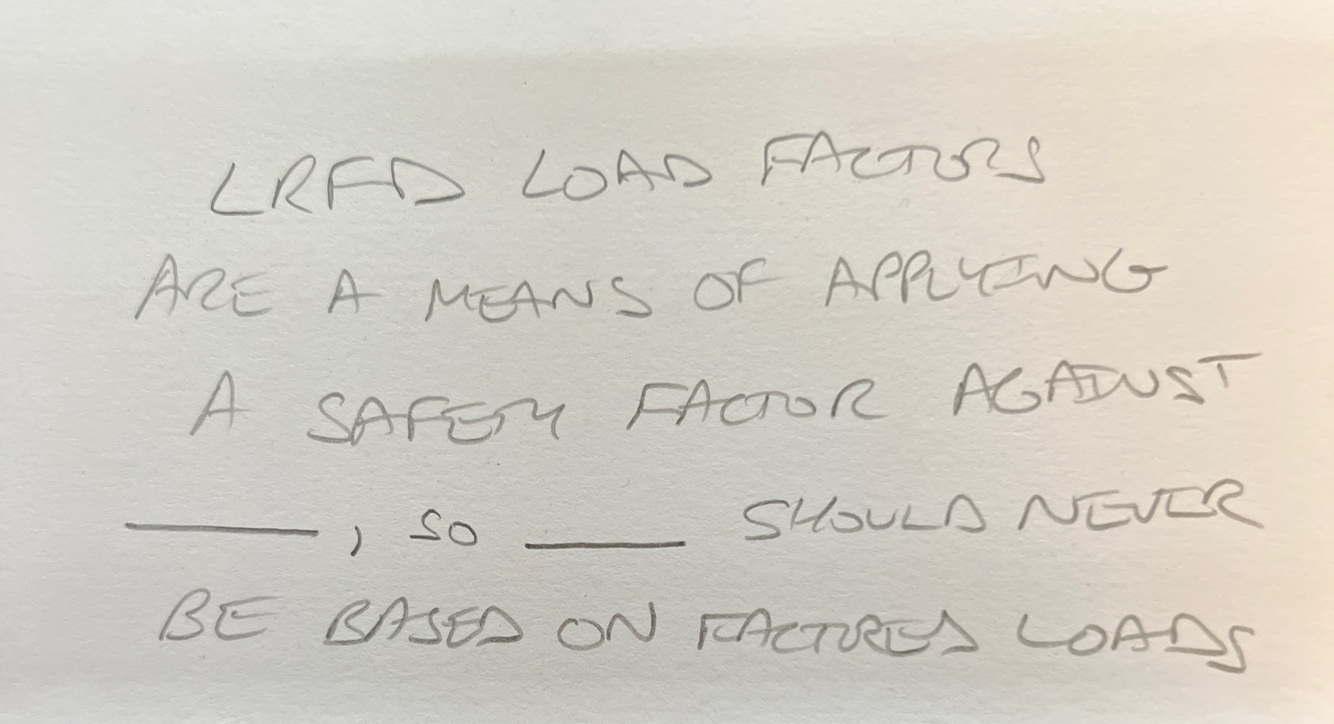 LRFD LOAD FACTORS
ARE A MEANS OF APPLYING
A SAFETY FACTOR AGAINST
______, SO _____ SHOULD NEVER
BE BASED ON FACTORED LOADS